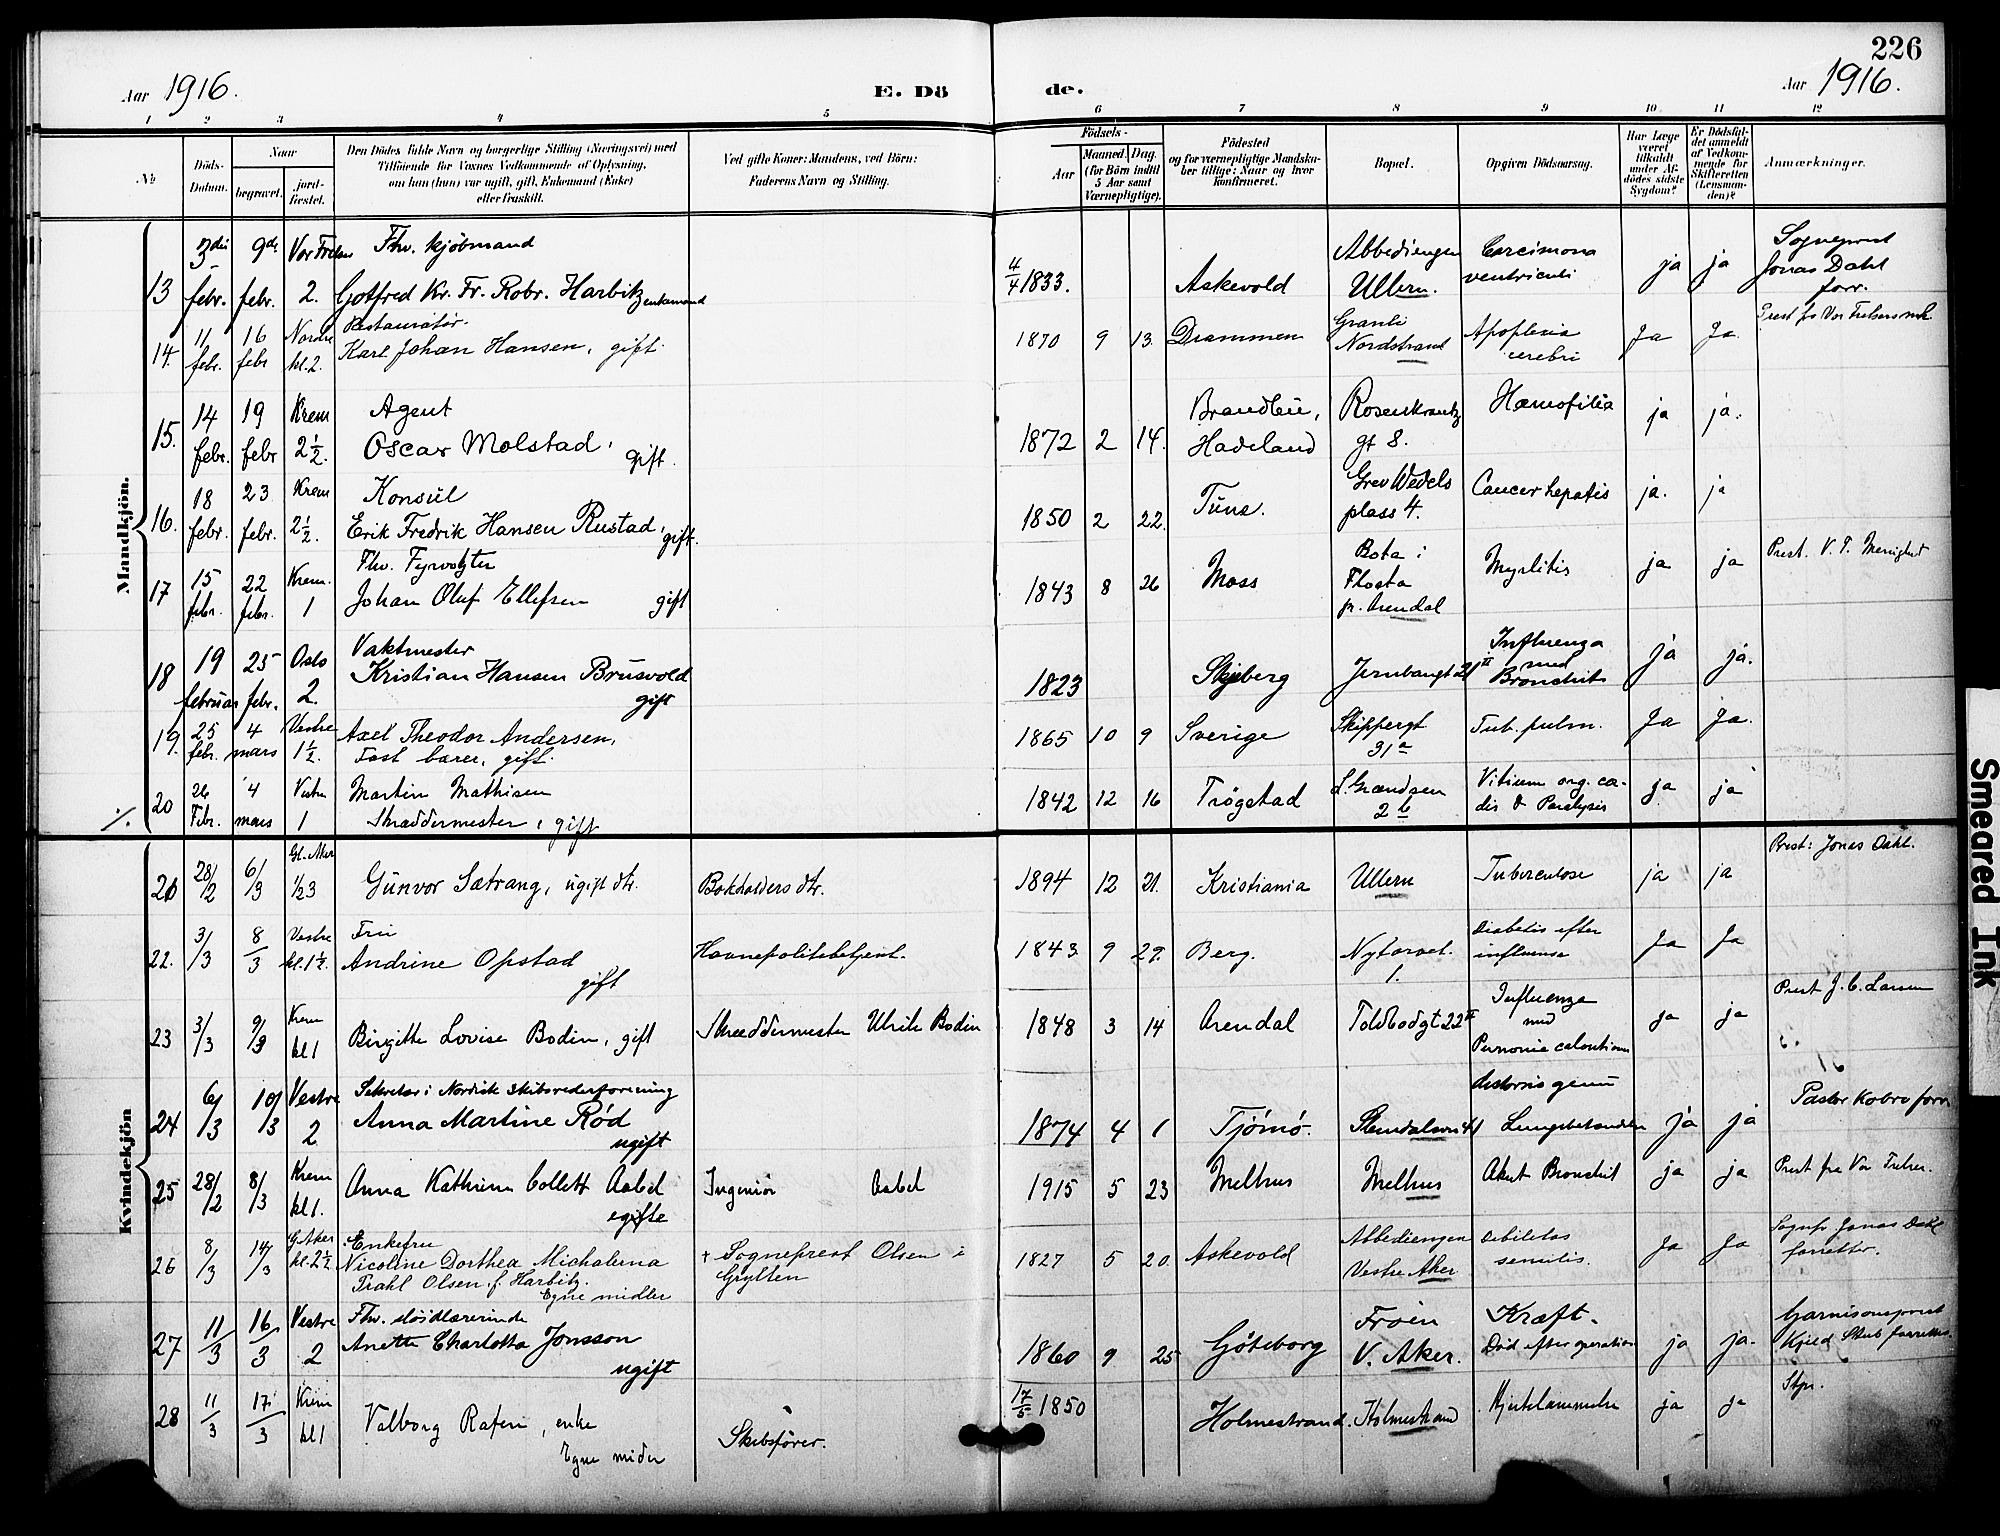 226
Aar 1916.
E. Dö
de.
Aar 1916.
1 2 3 4 5 6 7 8 9 10 11 12
№
Döds-Datum.
Naar
begravet.
jord-fæstet.
Den Dödes fulde Navn og borgerlige Stilling (Næringsvei) med
Tilföiende for Voxnes Vedkommende af Oplysning,
om han (hun) var ugift, gift, Enkemand (Enke)
eller fraskilt.
Ved gifte Koner: Mandens, ved Börn:
Faderens Navn og Stilling.
Födsels-
Aar
Maaned. Dag.
(for Börn indtil
5 Aar samt
Værnepligtige).
Födested
og for værnepligtige Mandska-
ber tillige: Naar og hvor
konfirmeret.
Bopæl.
Opgiven Dödsaarsag.
Har Læge
været
tilkaldt
under Af-
dödes sidste
Sygdom?
Er Dödsfal-
det anmeldt
af Vedkom-
mende for
Skifteretten
(Lensman-
den)?
Anmærkninger.
Mandkjön.
13 3die febr. 9de febr. Vor Frelsers 2. Fhv. kjöbmand
Gotfred Kr. Fr. Robr. Harbitz enkemand
4/4 1833. Askevold Abbediengen Ullern. Carcinoma ventriculi ja ja Sogneprest Jonas Dahl forr.
14. 11 febr. 16 febr Nordre kl. 2. Restauratör.
Karl Johan Hansen, gift.
1870 9 13. Drammen Granli Nordstrand Apoplexia cerebri Ja Ja. Prest fra Vor Frelsers mk
15. 14 febr. 19 febr Krem 2 1/2. Agent
Oscar Molstad, gift.
1872 2 14. Brandbu, Hadeland Rosenkrantz gt 8. Hæmofilia ja ja.
16. 18 febr. 23 febr. Krem 2 1/2. Konsul
Erik Fredrik Hansen Rustad, gift.
1850 2 22. Tune. Grev Wedels plass 4. Cancer hepatis ja. ja
17 15 febr. 22 febr. Krem. 1 Fhv. Fyrvogter
Johan Oluf Ellefsen gift
1843 8 26 Moss Bota i Flosta pr. Arendal Myelitis ja ja Prest. V. F. Menighet
18 19 februar 25 febr. Oslo 2. Vaktmester
Kristian Hansen Brusvold gift
1823 Skjeberg Jernbanegt 21 II Influenza med Bronchit ja ja.
19. 25 febr. 4 mars Vestre 1 1/2. Axel Theodor Andersen,
Fast bærer, gift.
1865 10 9 Sverige Skippergt 31a Tub. pulm. Ja Ja.
20 26 Febr. 4 mars Vestre 1 Martin Mathisen
Skræddermester, gift
1842 12 16 Trøgstad L. Grændsen 2 b Vitium org. cordis & Paralysis ja ja
Kvindekjön
21 28/2 6/3 Gl. Aker 1/2 3 Gunvor Sætrang, ugift dtr. Bokholders dtr.
1894 12 21. Kristiania Ullern Tuberculose ja ja Prest: Jonas Dahl.
22. 3/3 8/3 Vestre kl. 1 1/2. Fru
Andrine Opstad gift Havnepolitibetjent.
1843 9 29. Berg. Nytorvet 1. Diabetis efter influensa Ja Ja
23 3/3 9/3 Krem kl 1 Birgitte Lovise Bodin, gift Skræddermester Ulrik Bodin
1848 3 14 Arendal Toldbodgt 22 II Influenza med ja ja Prest J. C. Larsen
24 6/3 10/3 Vestre 2 Sekretær i Nordisk skibsrederforening
Anna Martine Rød ugift
1874 4 1 Tjömö. ja ja Pastor Kobro forr
25 28/2 8/3 Krem kl 1. Anna Kathrine Collett Aabel egifte Ingeniør Aabel
1915 5 23 Melhus Melhus Akut Bronchit ja ja Prest fra Vor Frelser.
26 8/3 14/3 G. Aker kl. 2 1/2 Enkefru
Nicoline Dorthea Michaleina
Trahl Olsen, f. Harbitz.
Egne midler
+ Sogneprest Olsen i
Grytten
1827 5 20. Askevold Abbediengen Vestre Aker debilitas senilis. Ja Ja Sognepr. Jonas Dahl forretter.
27 11/3 16/3 Vestre 2 Fhv. sløidlærerinde
Anette Charlotta Jonsson ugift
1860 9 25 Göteborg Frøen V. Aker. Kræft. Död efter operation ja ja. Garnisonsprest Kjeld Stub forretter.
28 11/3 17/3 Krem kl 1 Valborg Rafen, enke
Egne midler
Skibsfører.
17/5 1850 Holmestrand. Holmestrand Hjertelammelse ja ja Stpr.
Smeared Ink